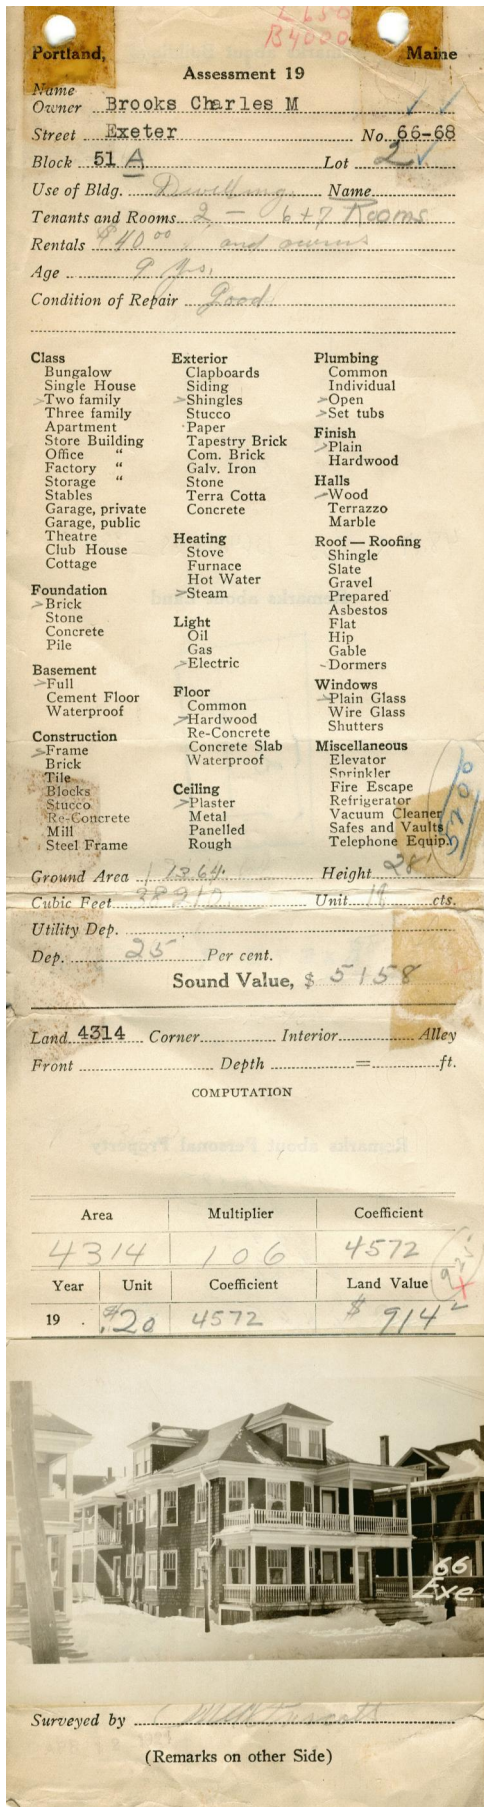 L 650
B4000
Portland, Maine
Assessment 19
Name
Owner Brooks Charles M
Street Exeter No. 66-68
Block 51 A Lot 2
Use of Bldg. Dwelling Name
Tenants and Rooms 2 — 6+7 Rooms
Rentals $40 00 and owns
Age 9 yrs.
Condition of Repair Good
Class
Bungalow
Single House
Two family
Three family
Apartment
Store Building
Office "
Factory "
Storage "
Stables
Garage, private
Garage, public
Theatre
Club House
Cottage
Foundation
Brick
Stone
Concrete
Pile
Basement
Full
Cement Floor
Waterproof
Construction
Frame
Brick
Tile
Blocks
Stucco
Re-Concrete
Mill
Steel Frame
Exterior
Clapboards
Siding
Shingles
Stucco
Paper
Tapestry Brick
Com. Brick
Galv. Iron
Stone
Terra Cotta
Concrete
Heating
Stove
Furnace
Hot Water
Steam
Light
Oil
Gas
Electric
Floor
Common
Hardwood
Re-Concrete
Concrete Slab
Waterproof
Ceiling
Plaster
Metal
Panelled
Rough
Plumbing
Common
Individual
Open
Set tubs
Finish
Plain
Hardwood
Halls
Wood
Terrazzo
Marble
Roof — Roofing
Shingle
Slate
Gravel
Prepared
Asbestos
Flat
Hip
Gable
Dormers
Windows
Plain Glass
Wire Glass
Shutters
Miscellaneous
Elevator
Sprinkler
Fire Escape
Refrigerator
Vacuum Cleaner
Safes and Vaults
Telephone Equip.
5200
Ground Area 1364. Height 28'
Cubic Feet 38210 Unit 18 cts.
Utility Dep.
Dep. 25 Per cent.
Sound Value, $ 5158
Land 4314 Corner Interior Alley
Front Depth = ft.
COMPUTATION
Area Multiplier Coefficient
4314 106 4572
925
Year Unit Coefficient Land Value
19 . $.20 4572 $ 914
66
Exe
Surveyed by
(Remarks on other Side)